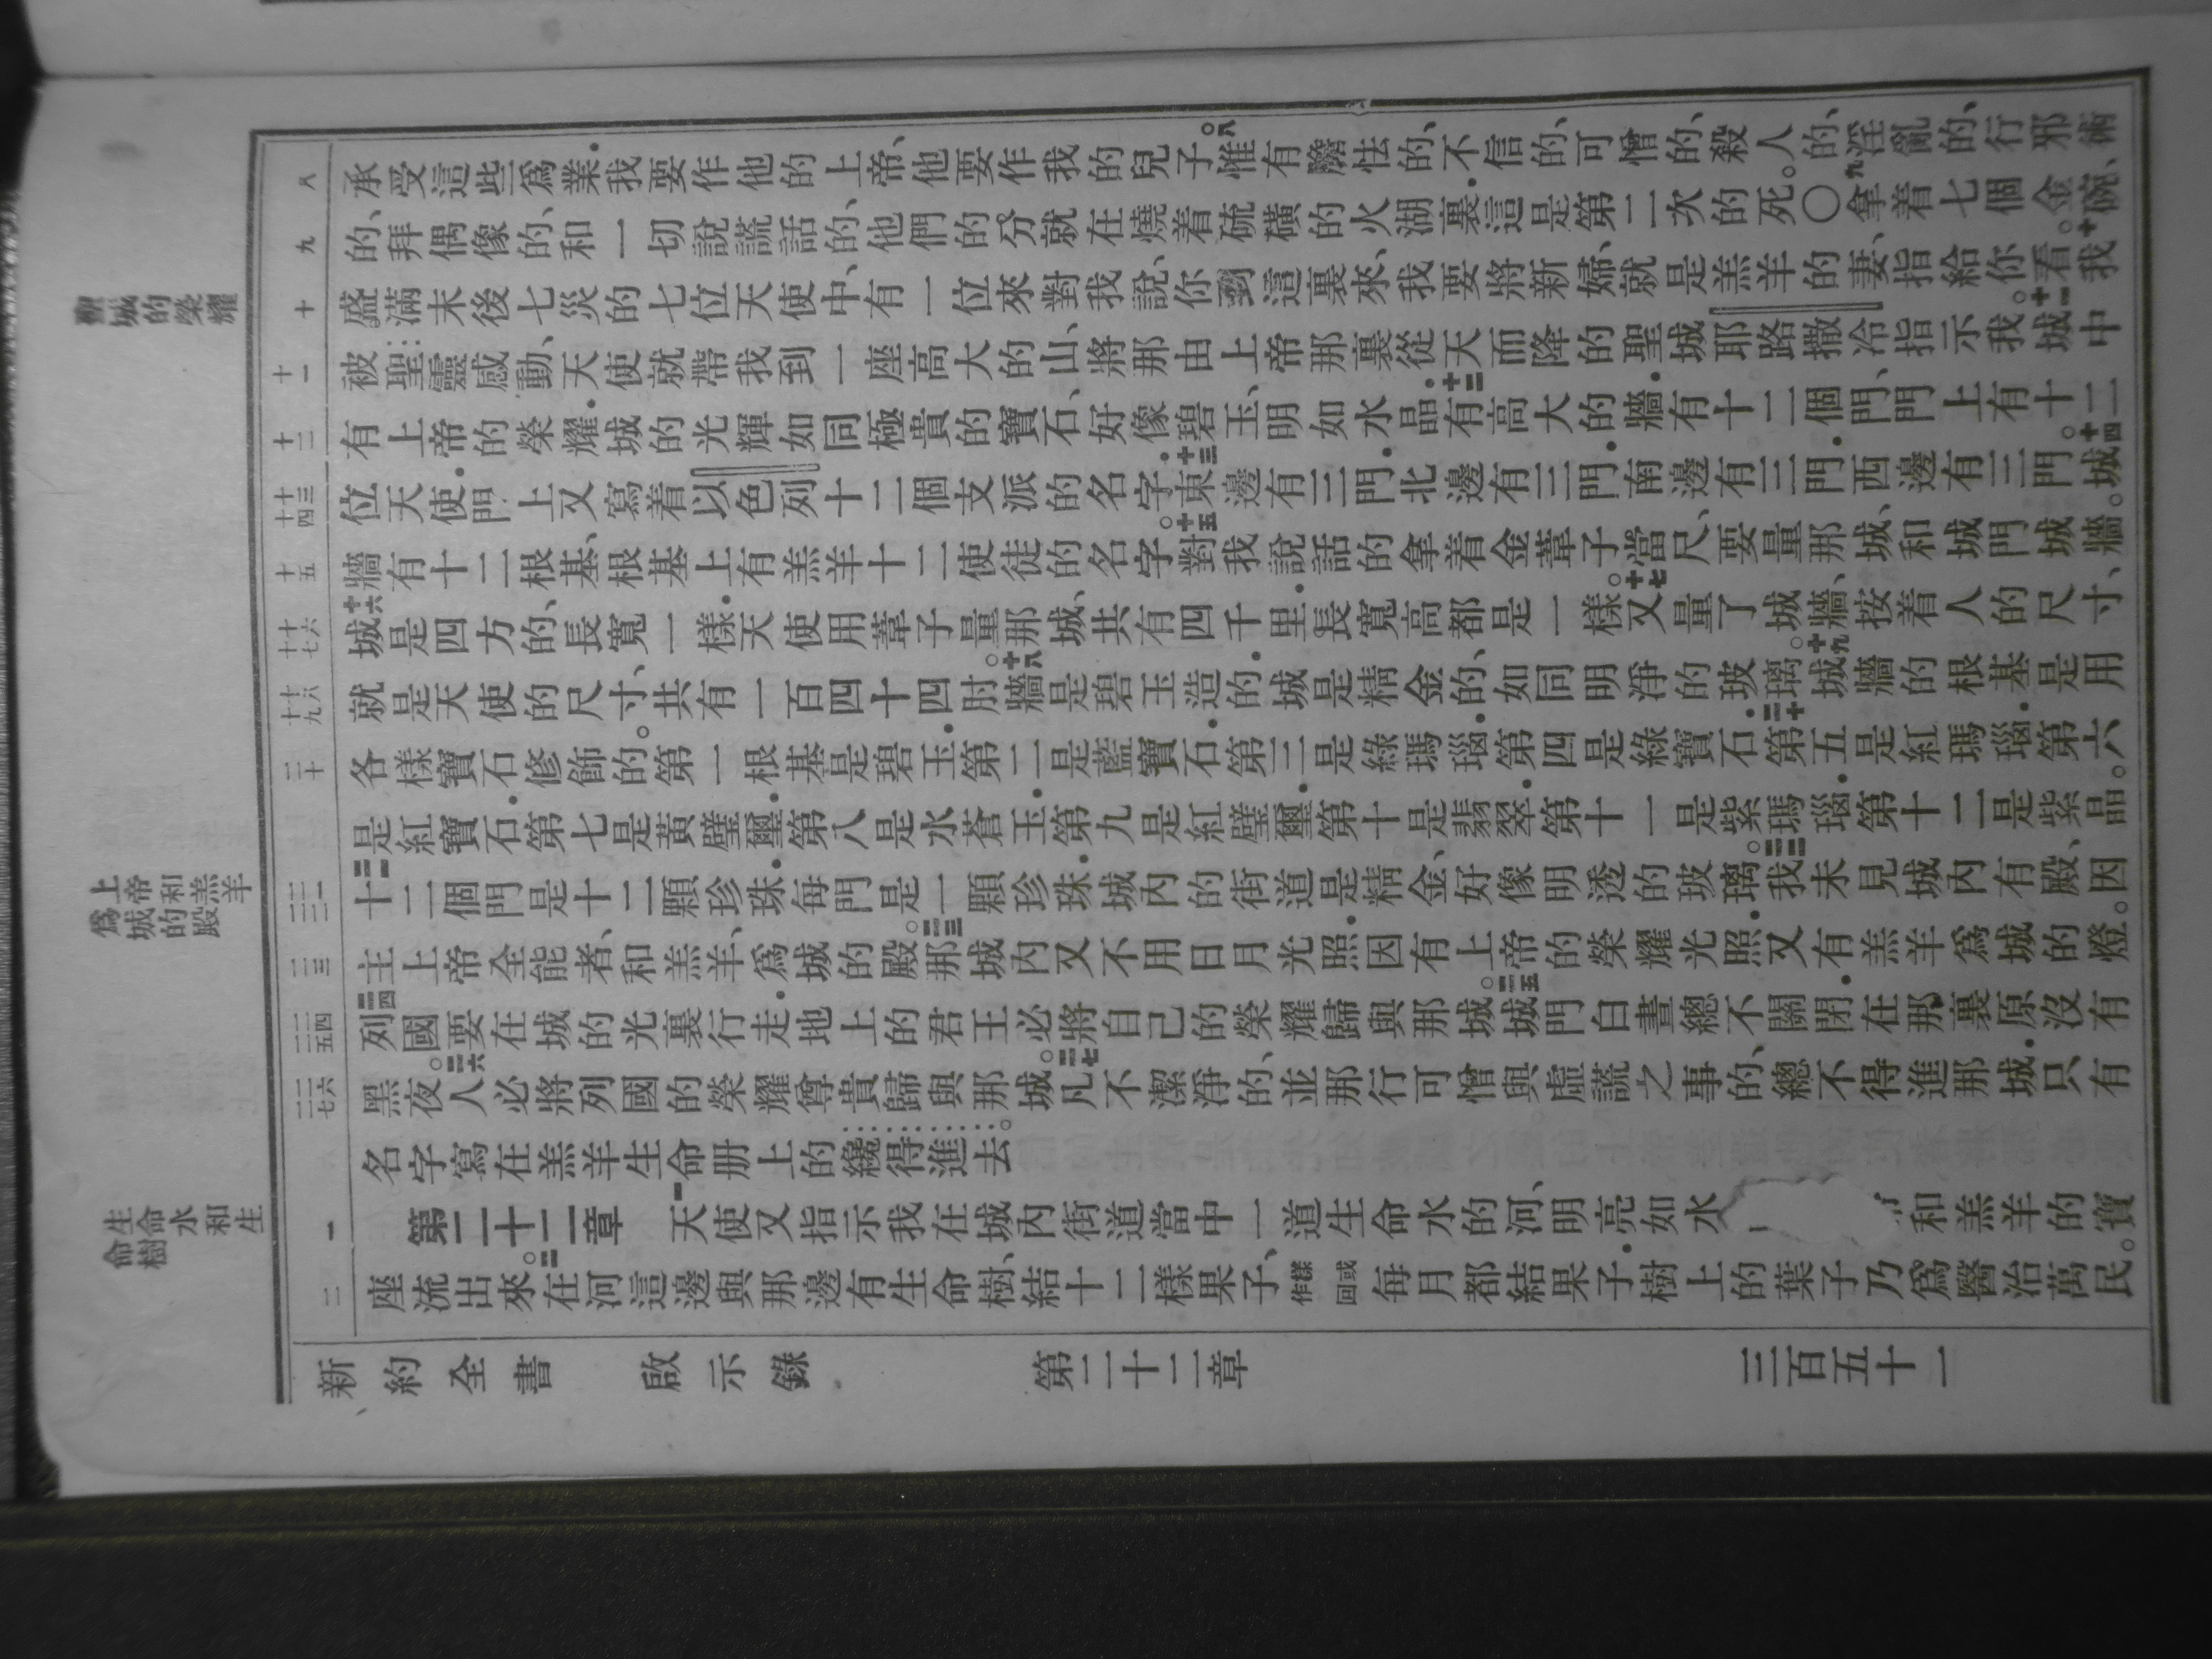 新城的榮耀
上帝和羔羊
爲城的殿
生命水和生
命樹
八
九
十
十一
十二
十三 十四
十五
十六 十七
十八 十九
二十
二一 二二
二三
二四 二五
二六 二七
一
二
承受這些爲業．我要作他的上帝、他要作我的兒子。八惟有膽怯的、不信的、可憎的、殺人的、淫亂的、行邪術
的、拜偶像的、和一切說謊話的、他們的分就在燒着硫磺的火湖裏．這是第二次的死。〇九拿着七個金碗、
盛滿末後七災的七位天使中、有一位來對我說、你到這裏來、我要將新婦、就是羔羊的妻、指給你看。十我
被聖靈感動、天使就帶我到一座高大的山、將那由上帝那裏從天而降的聖城耶路撒冷指示我。十一城中
有上帝的榮耀．城的光輝如同極貴的寶石、好像碧玉、明如水晶．十二有高大的牆．有十二個門、門上有十二
位天使．門上又寫着以色列十二個支派的名字．十三東邊有三門．北邊有三門．南邊有三門．西邊有三門。十四城
牆有十二根基、根基上有羔羊十二使徒的名字。十五對我說話的拿着金葦子當尺、要量那城、和城門城牆。
十六城是四方的、長寬一樣．天使用葦子量那城、共有四千里．長寬高都是一樣。十七又量了城牆、按着人的尺寸、
就是天使的尺寸、共有一百四十四肘。十八牆是碧玉造的．城是精金的、如同明淨的玻璃。十九城牆的根基是用
各樣寶石修飾的。第一根基是碧玉．第二是藍寶石．第三是綠瑪瑙．第四是綠寶石．二十第五是紅瑪瑙．第六
是紅寶石．第七是黃璧璽．第八是水蒼玉．第九是紅璧璽．第十是翡翠．第十一是紫瑪瑙．第十二是紫晶。
二一十二個門是十二顆珍珠．每門是一顆珍珠．城內的街道是精金、好像明透的玻璃。二二我未見城內有殿、因
主上帝全能者、和羔羊、爲城的殿。二三那城內又不用日月光照．因有上帝的榮耀光照．又有羔羊爲城的燈。
二四列國要在城的光裏行走．地上的君王必將自己的榮耀歸與那城。二五城門白晝總不關閉．在那裏原沒有
黑夜。二六人必將列國的榮耀尊貴歸與那城。二七凡不潔淨的、並那行可憎與虛謊之事的、總不得進那城．只有
名字寫在羔羊生命册上的纔得進去。
第二十二章　一天使又指示我在城內街道當中一道生命水的河、明亮如水 和羔羊的寶
座流出來。二在河這邊與那邊有生命樹、結十二樣果子、樣或作回每月都結果子．樹上的葉子乃爲醫治萬民。
新約全書　啟示錄　第二十二章　三百五十一